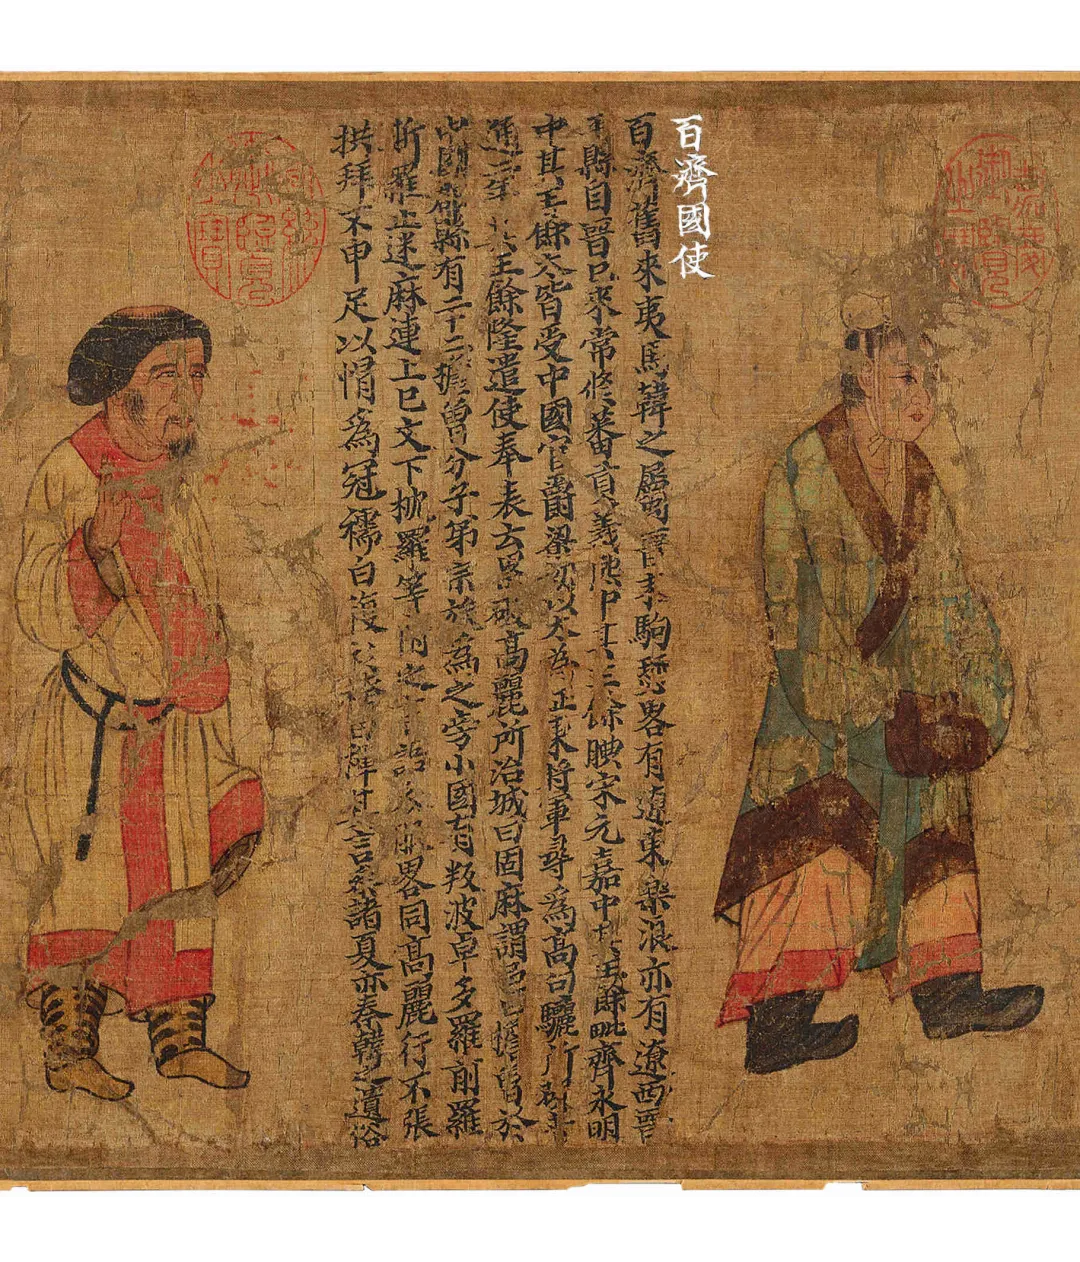 百濟國使
百濟舊來夷馬韓之屬晉末駒驪畧有遼東樂浪亦有遼西晉
平縣自晉已來常修蕃貢義熙中其王餘腆宋元嘉中其王餘毗齊永明
中其王餘太皆受中國官爵梁初以太為正東將軍尋爲高句驪所破
通二年其王餘隆遣使奉表云累破高麗所治城曰固麻謂邑曰檐魯於
中國郡縣有二十二檐魯分子弟宗族爲之旁小國有叛波卓多羅前羅
斯羅止迷麻連上巳文下枕羅等附之言語衣服畧同高麗行不張
拱拜不申足以帽爲冠襦曰複衫袴曰褌其言參諸夏亦秦韓之遺俗